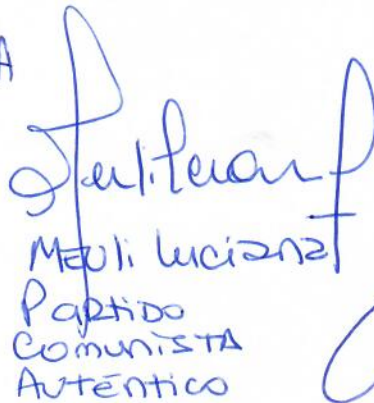 A
Meuli Luciana
Partido
Comunista
Auténtico